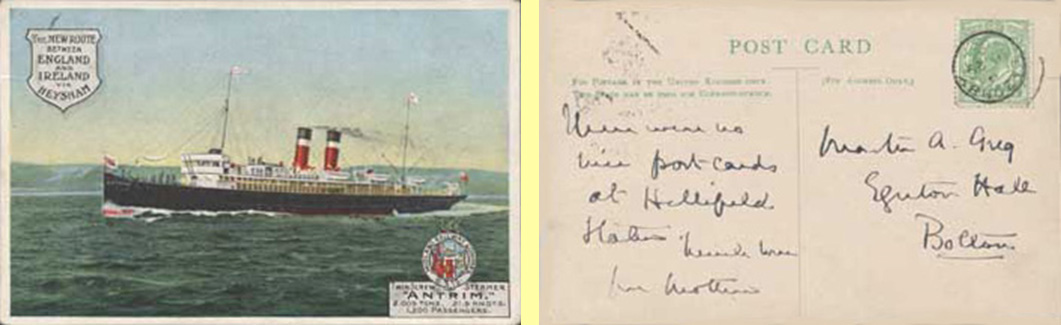 THE NEW ROUTE
BETWEEN
ENGLAND
AND
IRELAND
VIA
HEYSHAM
TWIN SCREW STEAMER
"ANTRIM."
2,000 TONS. 21.9 KNOTS.
1,200 PASSENGERS.
POST CARD
FOR POSTAGE IN THE UNITED KINGDOM ONLY.
THIS SPACE MAY BE USED FOR CORRESPONDENCE.
(FOR ADDRESS ONLY.)
There were no
nice post cards
at Hellifield
Station
Mother
Master A. Greg
Egerton Hall
Bolton